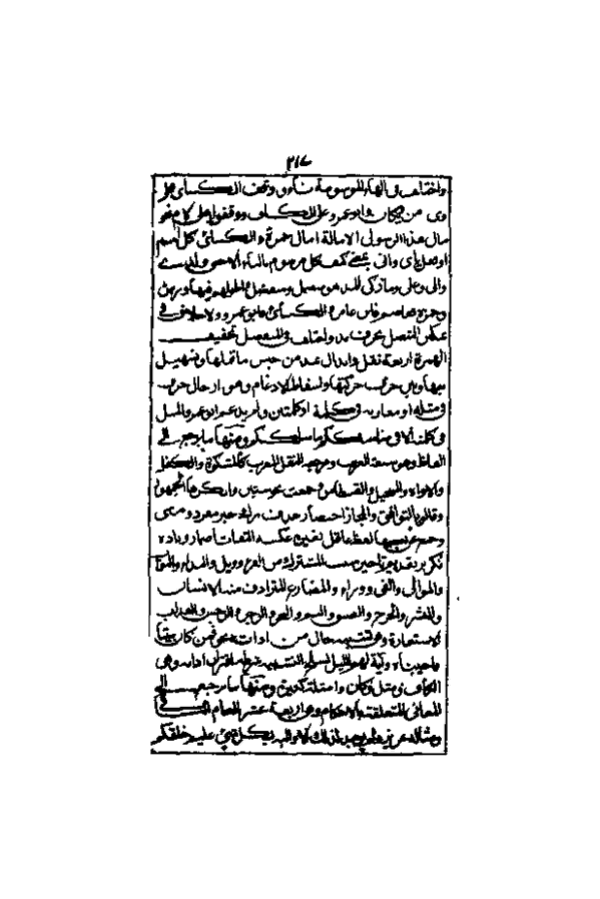 ٢١٧
واختلف في الهاء المرسومة تاء ووقف الكسائي على
وى من ويكان وابو عمرو على الكاف ووقفوا على لام نحو
مال هذا الرسول الامالة امال حمزة والكسائي كل اسم
او فعل يائي واني بمعنى كيف وكل مرسوم بالياء الا حتى ولدى
والى وعلى وما زكى المد هو متصل ومنفصل واطولهم فيهما ورش
وحمزة فعاصم فابن عامر والكسائي فابو عمرو ولا خلاف في
المتصل بحرف مد واختلف في المنفصل تخفيف
الهمزة اربعة نقل وابدال بمد من جنس ما قبلها وتسهيل
بينها وبين حرف حركتها واسقاط الادغام وهو ادخال حرف
في مثله او مقاربه في كلمة او كلمتين ولم يدغم ابو عمرو المثل
في كلمة الا في مناسككم وما سلككم ومنها ما يرجع الى
الفاظ وهو سبعة الغريب ومرجعه النقل المعرب كالمشكوة والكفل
والاواه والسجيل والقسطاس وجمعت نحو ستين وانكرها الجمهور
وقالوا بالتوافق والمجاز اختصار حذف ترك خبر مفرد ومثنى
وجمع عن بعضها لفظ عاقل لغيره عكسه التفات اضمار زيادة
تكرير تقديم وتاخير سبب المشترك القرء وويل والند والتواب
والمولى والغي ووراء والمضارع المترادف منه الانسان
والبشر والحرج والضيق واليم والبحر والرجز والرجس والعذاب
الاستعارة وهي تشبيه خال من اداته نحو اومن كان ميتا
فاحييناه وآية لهم الليل نسلخ التشبيه شرطه اقتران اداته وهي
الكاف ومثل وكان وامثلته كثيرة ومنها ما يرجع الى
المعاني المتعلقة بالاحكام وهو اربعة عشر العام الباقي
ومثاله عزيز ولم يوجد لذلك الا والله بكل شيء عليم خلقكم